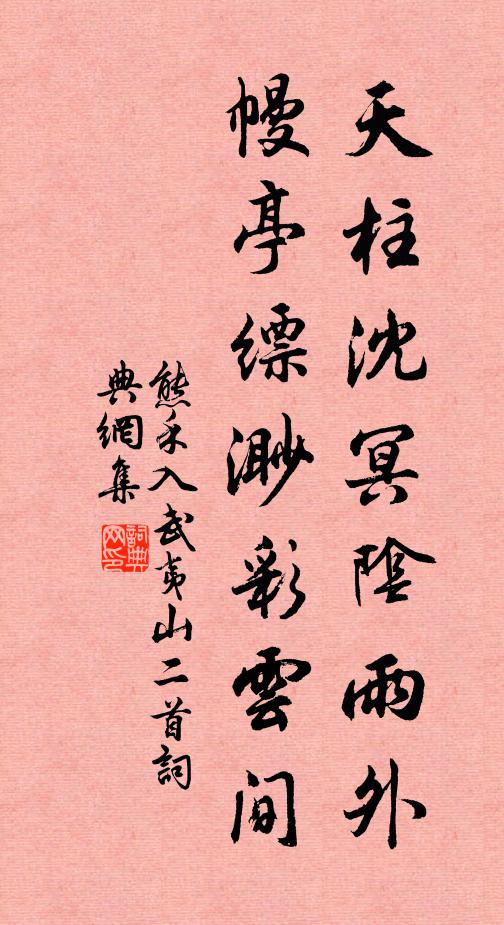 天柱沈冥陰雨外
幔亭缥渺彩雲间
熊禾入武夷山二首詞
典網集
詞典网印